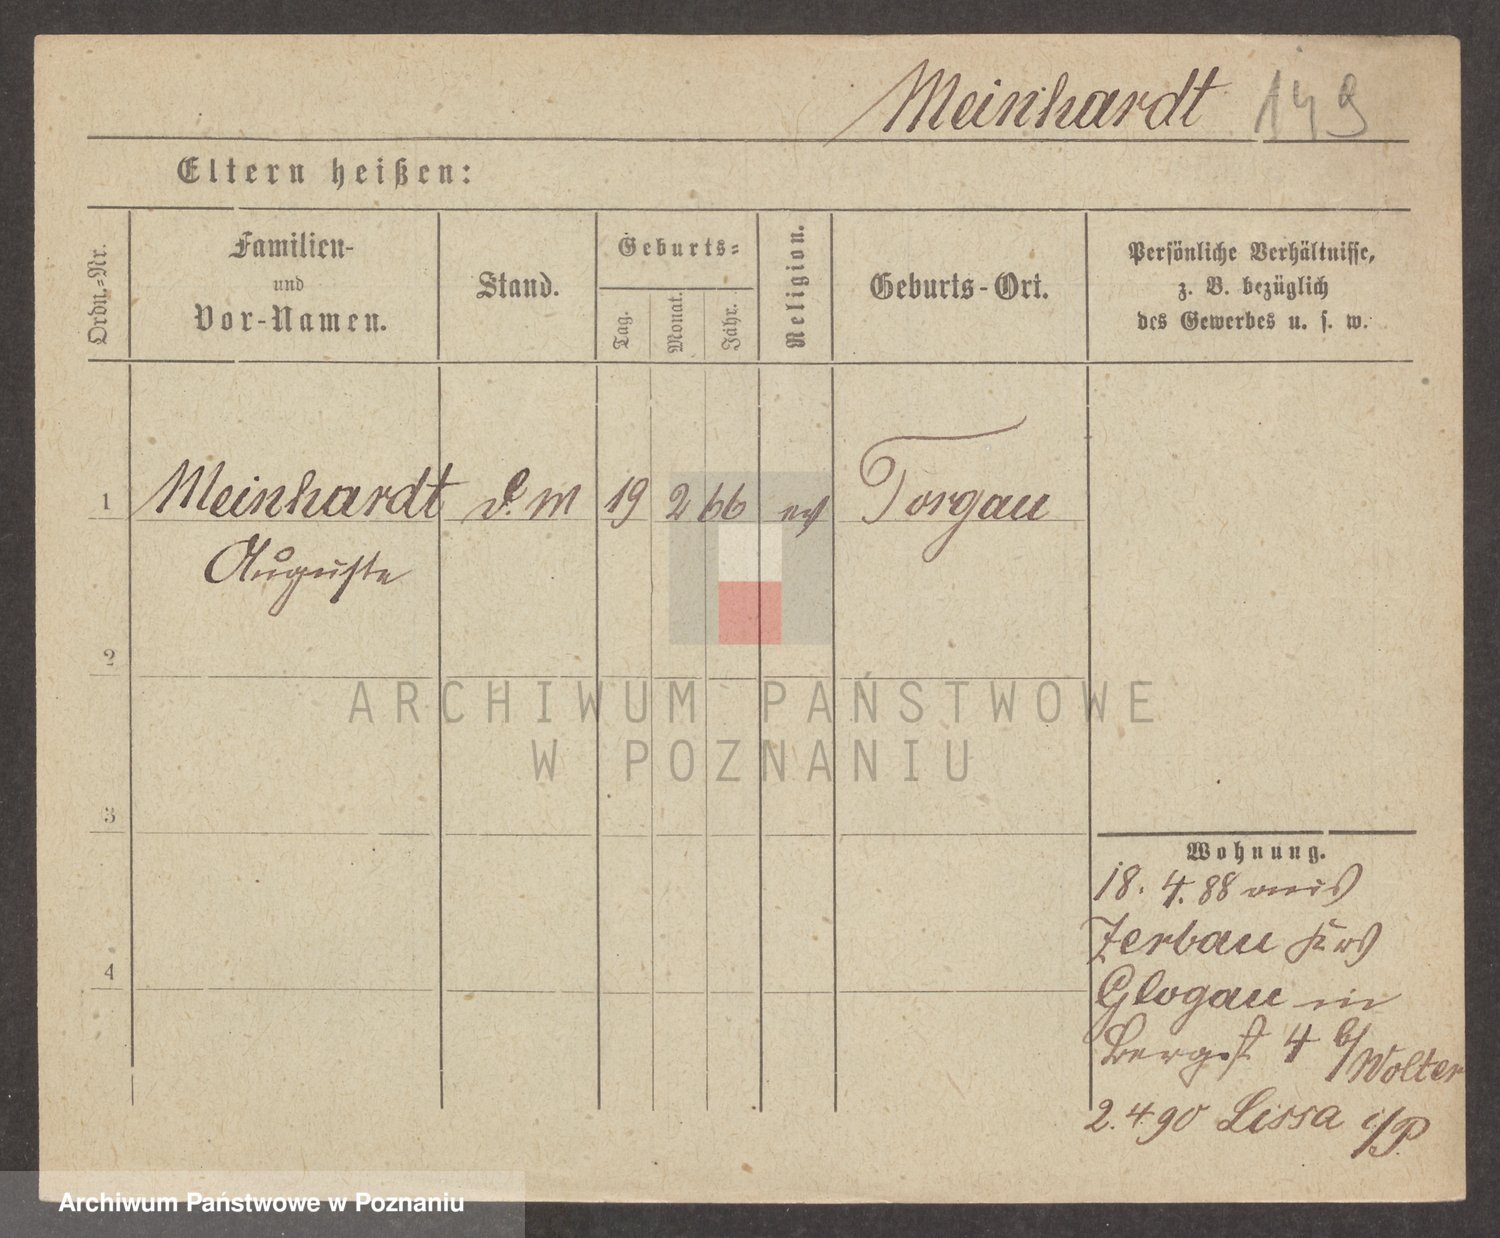 Meinhardt 149
Eltern heißen:
Ordn.-Nr.
Familien-
und
Vor-Namen.
Stand.
Geburts-
Tag.
Monat.
Jahr.
Religion.
Geburts-Ort.
Persönliche Verhältnisse,
z. B. bezüglich
des Gewerbes u. s. w.
1 Meinhardt d. m 19 2 66 ev Torgau
Auguste
2
ARCHIWUM PAŃSTWOWE
W POZNANIU
3
Wohnung.
18. 4. 88 aus
Zerbau Krs
4
Glogau in
Bergst 4 b/Wolter
2. 4 90 Lissa i/P.
Archiwum Państwowe w Poznaniu